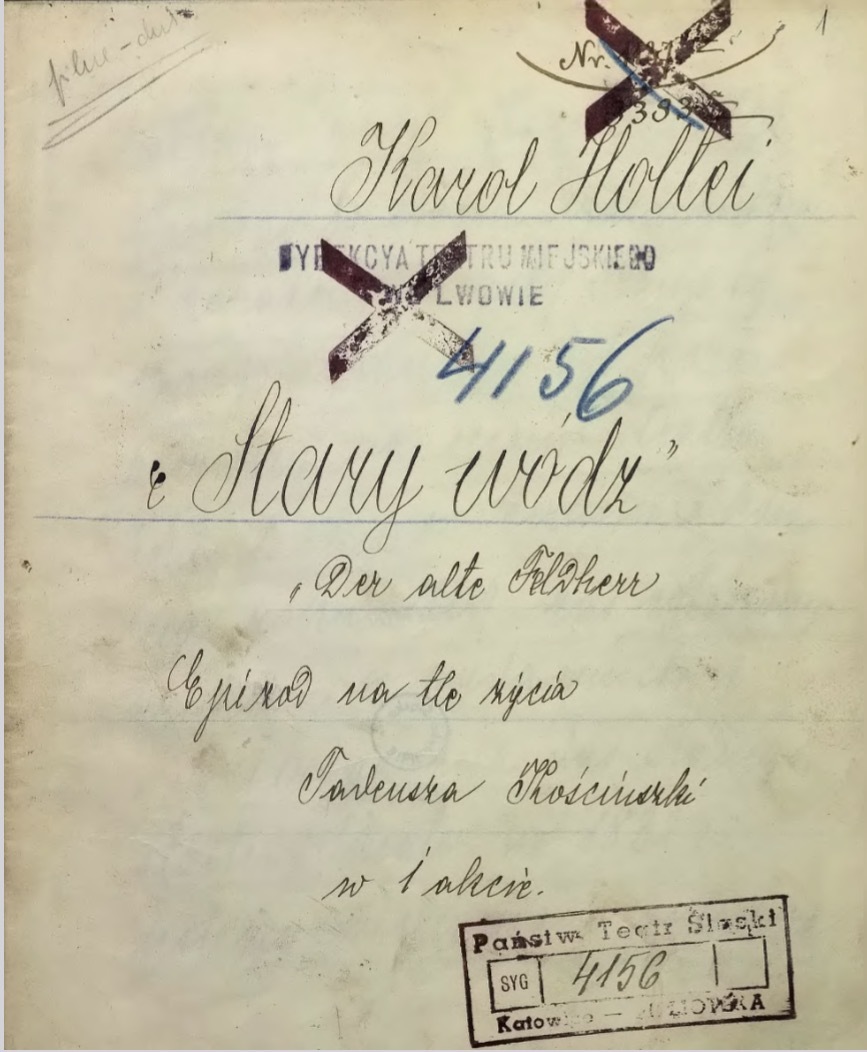 1
Nr.
Karol Holtei
DYREKCYA TEATRU MIEJSKIEGO
WE LWOWIE
4156
„Stary wódz”
„Der alte Feldherr
Epizod na tle życia
Tadeusza Kościuszki
w 1 akcie.
Państw. Teatr Śląski
SYG 4156
Katowice —